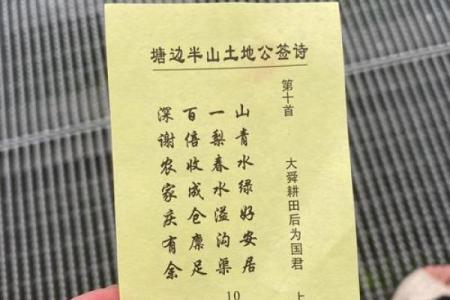 塘边半山土地公签诗
第十首
大舜耕田后为国君
山青水绿好安居
一犁春水溢沟渠
百倍收成仓廪足
深谢农家庆有余
10
上